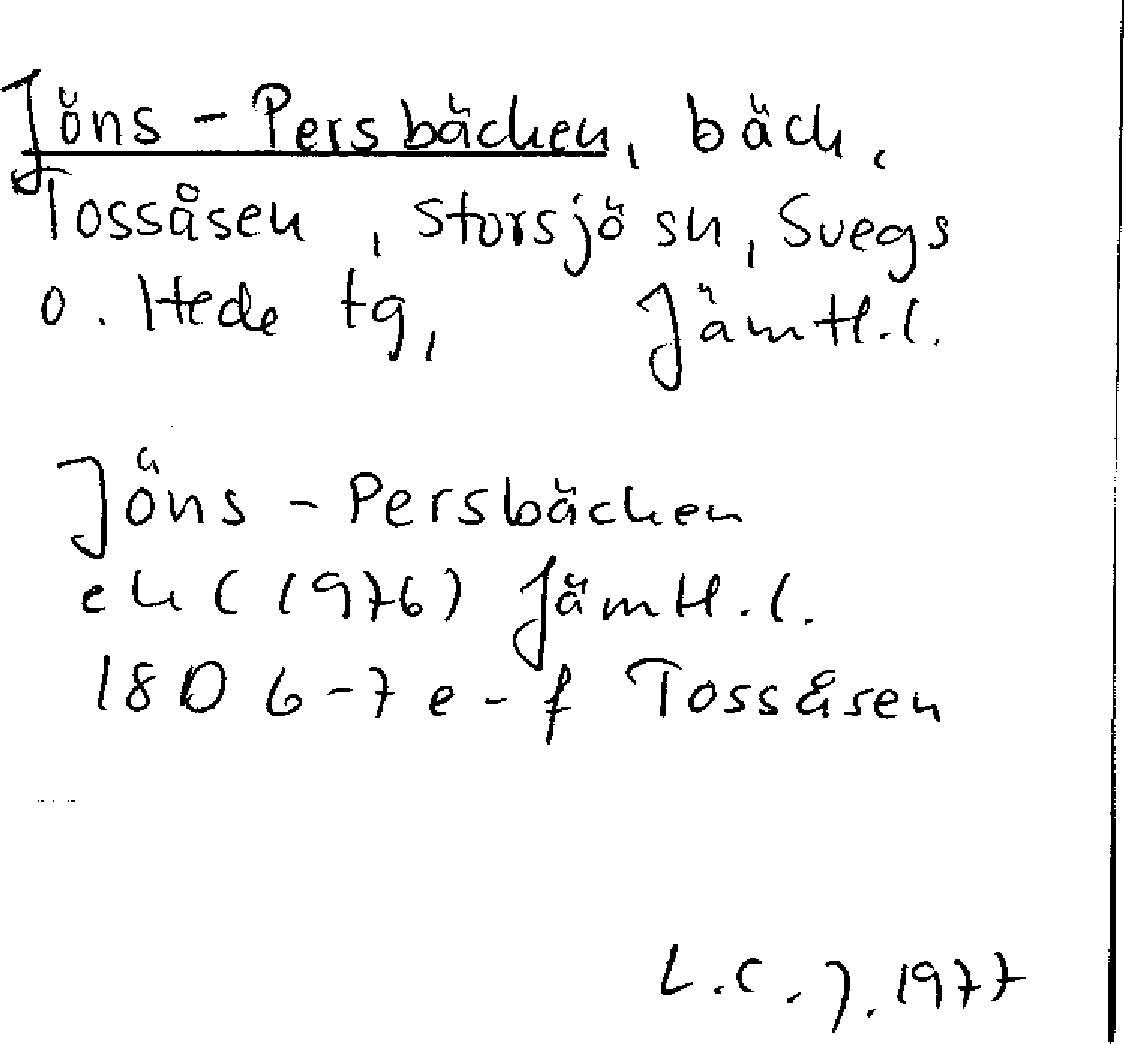 Jöns-Persbäcken, bäck.
Tossåsen, Storsjö sn, Svegs
o. Hede tg, Jämtl.l.
Jöns-Persbäcken
ek (1976) Jämtl.l.
18D 6-7 e-f Tossåsen
L.C.J. 1977